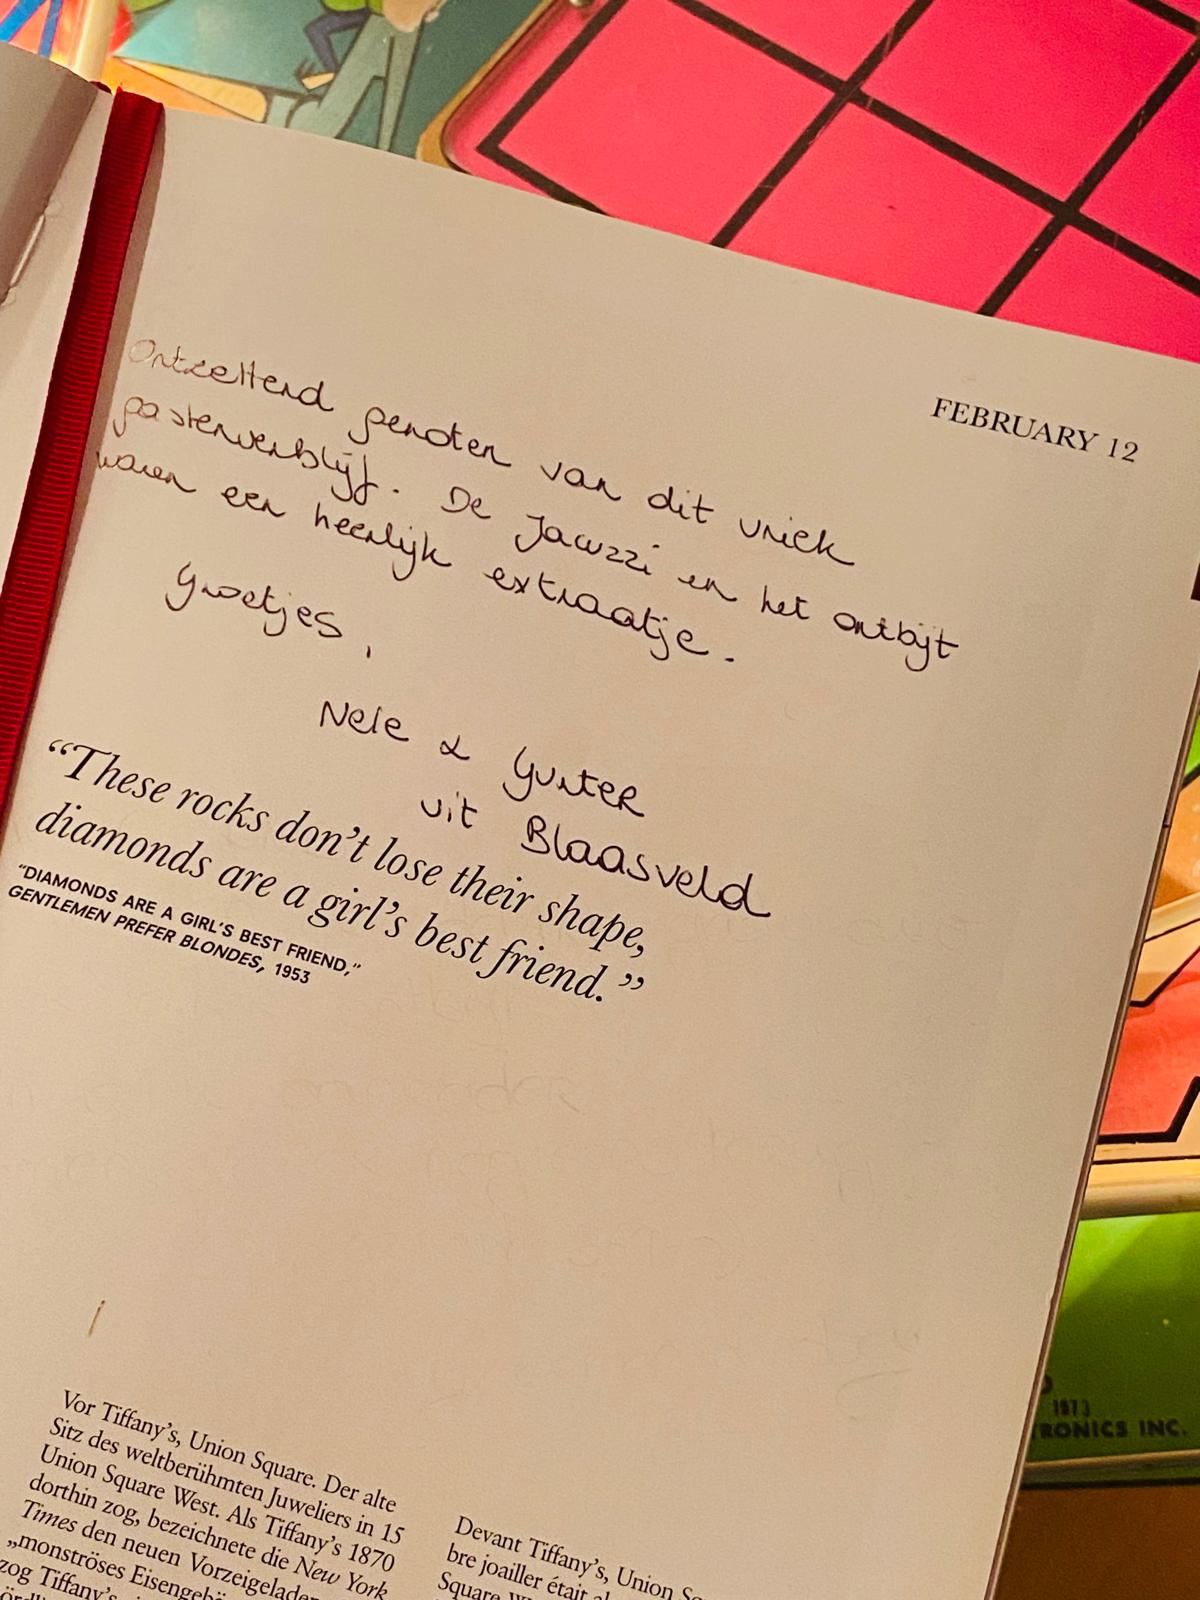 FEBRUARY 12
Ontzettend genoten van dit uniek
gastenverblijf. De Jacuzzi en het ontbijt
waren een heerlijk extraatje.
Groetjes,
Nele & Gunter
uit Blaasveld
“These rocks don’t lose their shape,
diamonds are a girl’s best friend.”
“DIAMONDS ARE A GIRL’S BEST FRIEND,”
GENTLEMEN PREFER BLONDES, 1953
Vor Tiffany’s, Union Square. Der alte
Sitz des weltberühmten Juweliers in 15
Union Square West. Als Tiffany’s 1870
dorthin zog, bezeichnete die New York
Times den neuen Vorzeigeladen
„monströses
zog Tiffany’s
Devant Tiffany’s, Union
bre joaillier était
Square
1973
TRONICS INC.